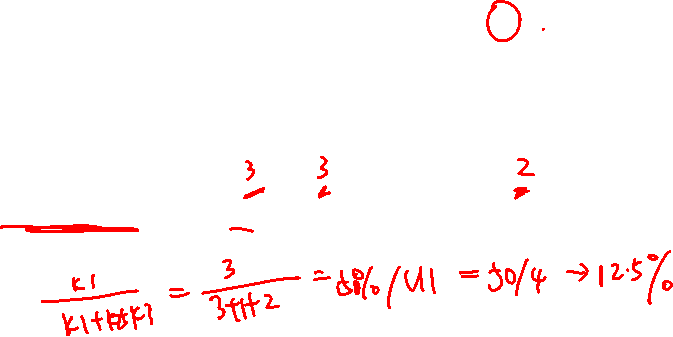 O.
3 3 2
K1/(K1+K2+K3) = 3/(3+1+2) = 50%/U1 = 50/4 → 12.5%